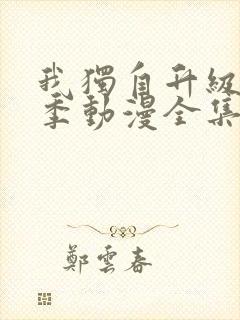 我獨自升級
季動漫全集
鄭雲春